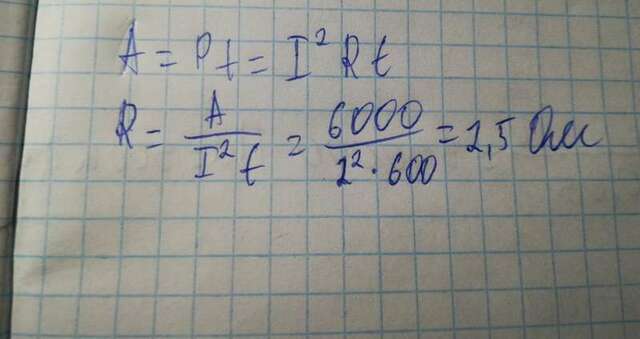 A = Pt = I²Rt
R = A / I²t = 6000 / 2² · 600 = 2,5 Ом